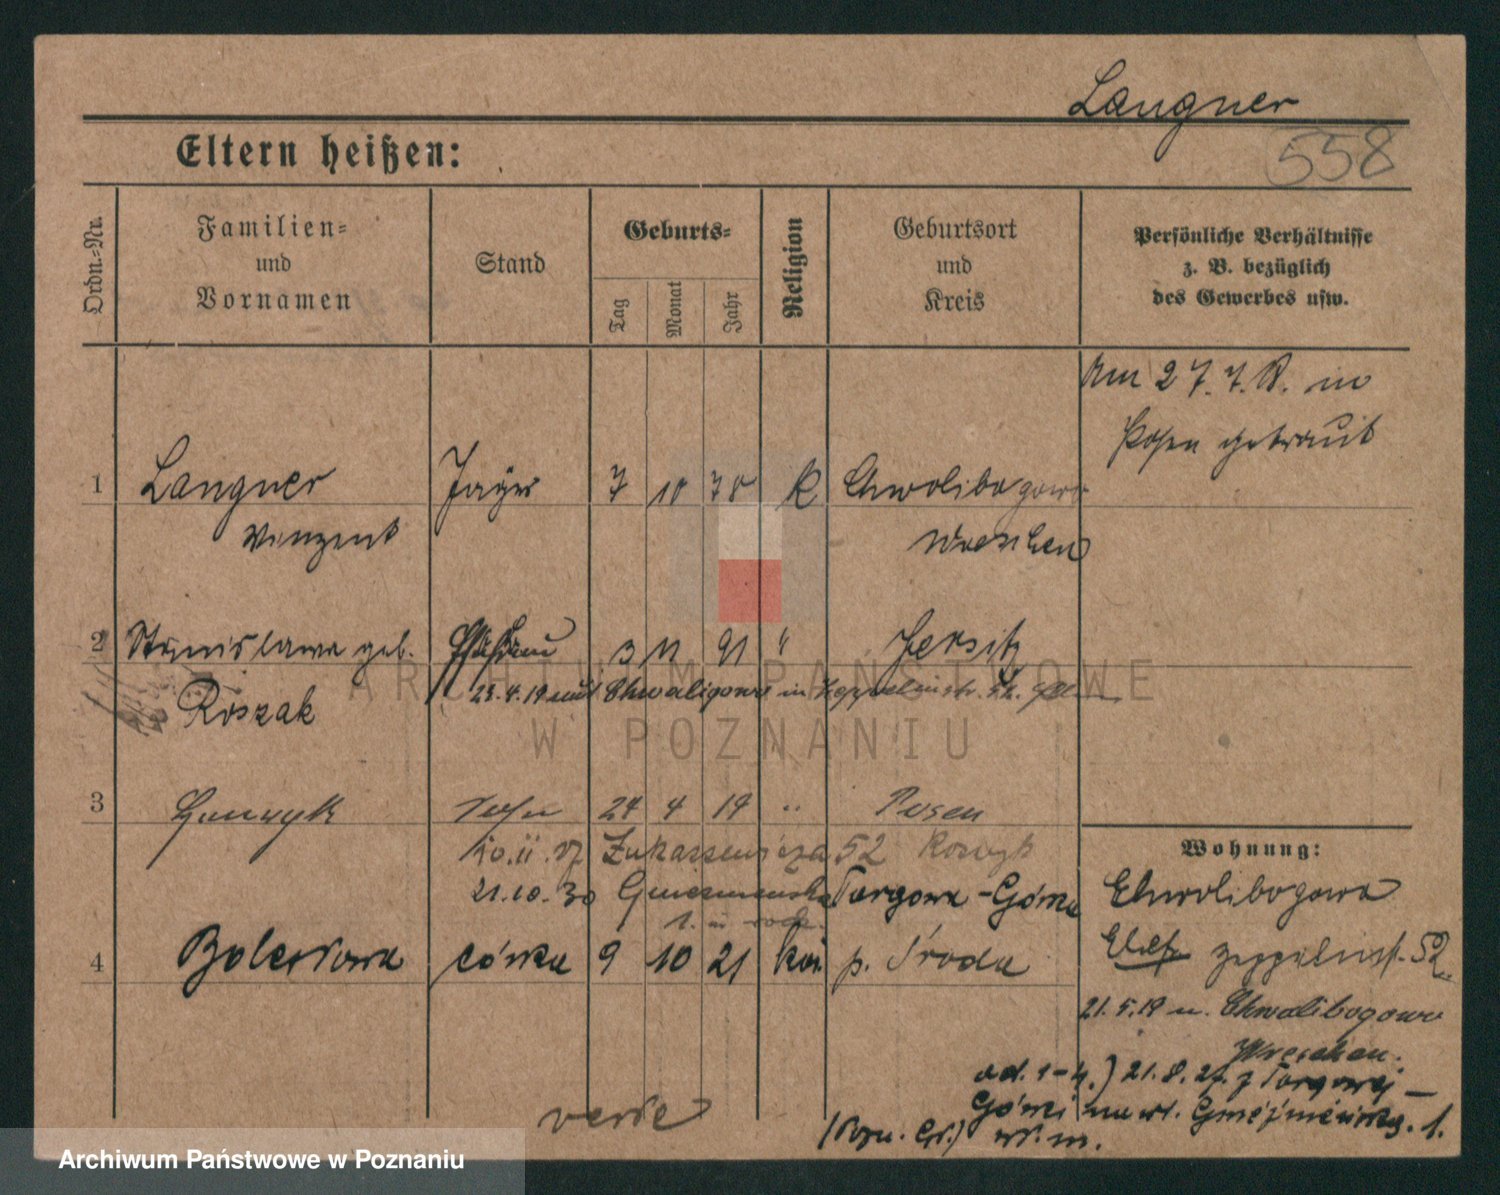 Langner
558
Eltern heißen:
Ordn.-Nr.
Familien- und Vornamen
Stand
Geburts-
Tag
Monat
Jahr
Religion
Geburtsort und Kreis
Persönliche Verhältnisse
z. B. bezüglich
des Gewerbes usw.
Am 27. 7. in
Posen getraut
1 Langner Jäger 7 10 78 K Chwalibogowo
Vinzent Wreschen
2 Stanislawa geb. 3 11 91 " Jersitz
Roszak
23. 4. 19 Chwalibogowo in Zeppelinstr. 52
3 Henryk Sohn 24 4 19 " Posen
Wohnung:
10. II. 27 Łukaszewicza 52
21. 10. 30 Gnieznieńska Targowa-Górka
Chwalibogowo
1.
4 Bolesława córka 9 10 21 kat. p. Środa
Zeppelinst. 52
21. 5. 19 n. Chwalibogowo
Wreschen.
ad. 1-4.) 21. 8. 27. z Targowej-
Górki na ul. Gnieźnieńską. 1.
verte
ARCHIWUM PAŃSTWOWE
W POZNANIU
Archiwum Państwowe w Poznaniu